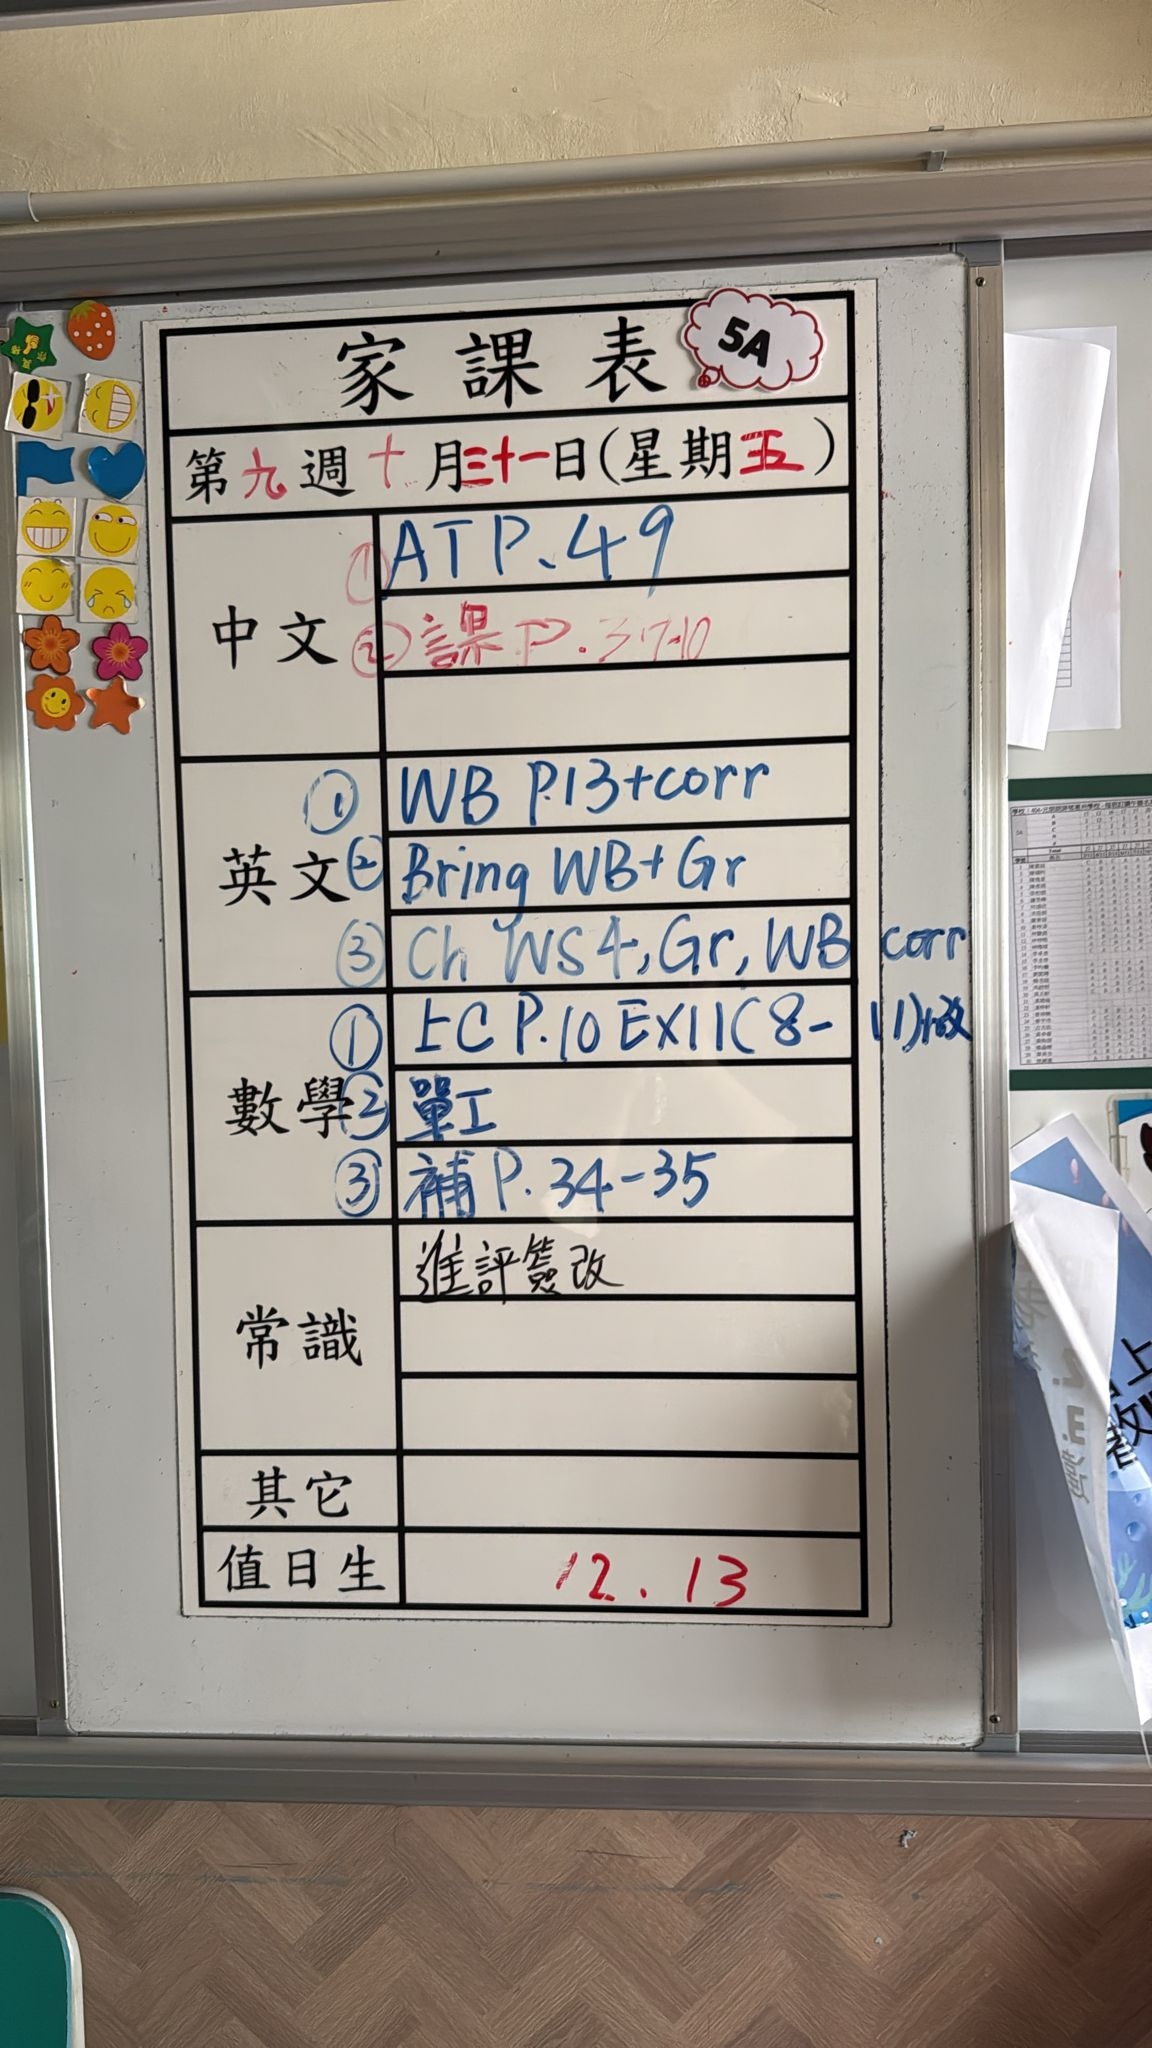 家課表 5A
第九週十月三十一日(星期五)
中文
① ATP.49
② 課P.37-10
英文
① WB P.13+corr
② Bring WB+Gr
③ Ch WS4,Gr,WB corr
數學
① EC P.10 EX11(8-11)+改
② 單工
③ 補P.34-35
常識
進評簽改
其它
值日生 12.13